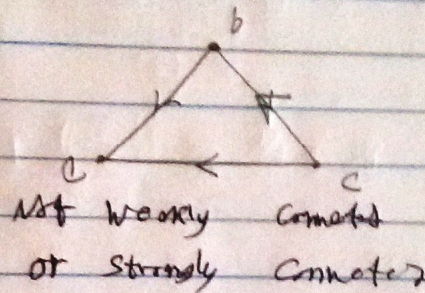 b
a c
Not Weakly Connected
or Strongly Connected